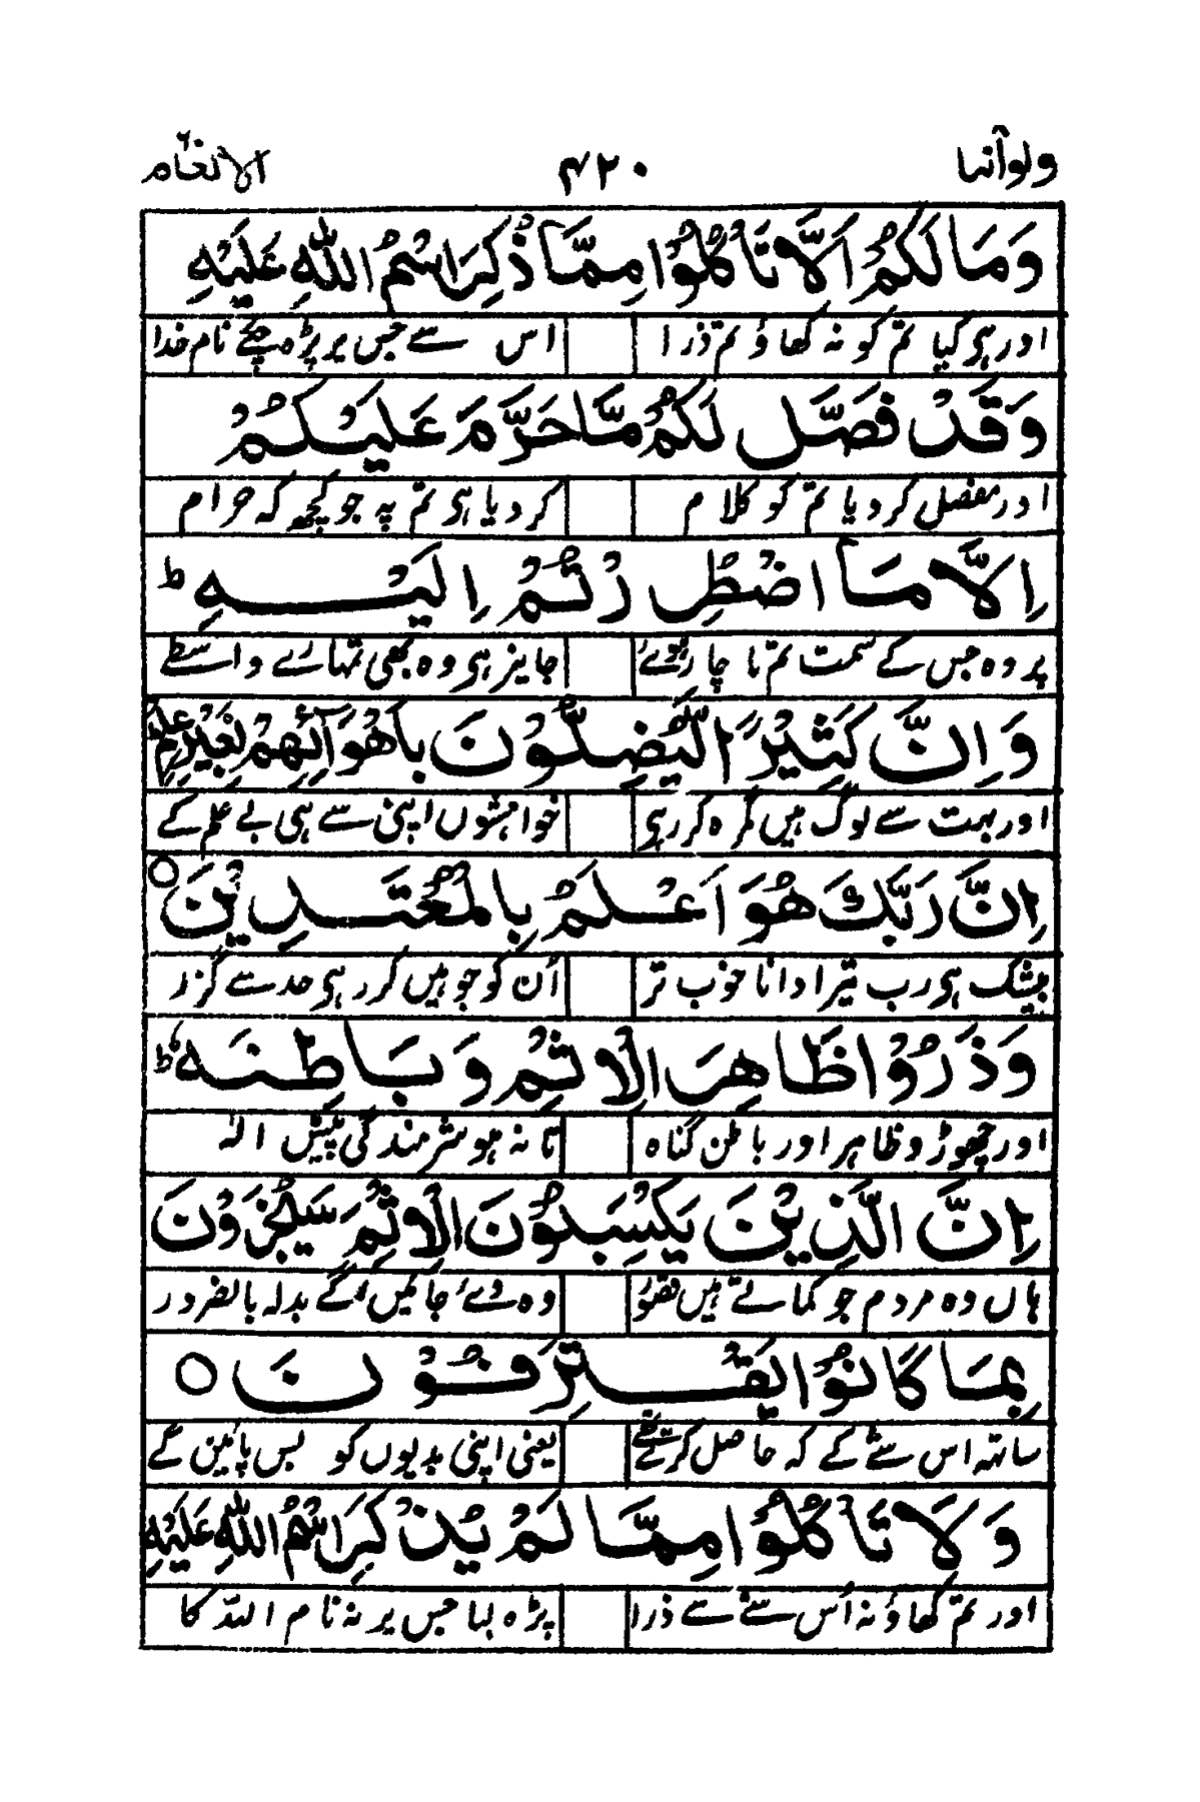 ولوآننا ۴۲۰ الانعام
وَمَالَكُمْ اَلَّا تَاْكُلُوْا مِمَّا ذُكِرَ اسْمُ اللّٰهِ عَلَيْهِ
اور ہی کیا تم کو نہ کھاؤ تم ذرا اس سے جس پر پڑہ چکے نام خدا
وَقَدْ فَصَّلَ لَكُمْ مَّا حَرَّمَ عَلَيْكُمْ
اور مفصل کر دیا تم کو کلام کر دیا ہی تم پہ جو کچھ کہ حرام
اِلَّا مَا اضْطُرِرْتُمْ اِلَيْهِ ؕ
پر وہ جس کے سمت تم نا چار ہوئے جایز ہی وہ بھی تمہارے واسطے
وَاِنَّ كَثِيْرًا لَّيُضِلُّوْنَ بِاَهْوَآئِهِمْ بِغَيْرِ عِلْمٍ
اور بہت سے لوگ ہیں گمرہ کر رہی خواہشوں اپنی سے ہی بے علم کے
اِنَّ رَبَّكَ هُوَ اَعْلَمُ بِالْمُعْتَدِيْنَ ○
بیشک ہی رب تیرا دانا خوب تر اُن کو جو ہیں کر رہی حد سے گزر
وَذَرُوْا ظَاهِرَ الْاِثْمِ وَبَاطِنَهٗ ؕ
اور چھوڑو ظاہر اور باطن گناہ تا نہ ہو شرمندگی پیش الہ
اِنَّ الَّذِيْنَ يَكْسِبُوْنَ الْاِثْمَ سَيُجْزَوْنَ
ہاں وہ مردم جو کماتے ہیں قصور وہ دئے جائیں گے بدلہ بالضرور
بِمَا كَانُوْا يَقْتَرِفُوْنَ ○
ساتہہ اس شے کے کہ حاصل کرتے تھے یعنی اپنی بدیوں کو بس پائین گے
وَلَا تَاْكُلُوْا مِمَّا لَمْ يُذْكَرِ اسْمُ اللّٰهِ عَلَيْهِ
اور تم کھاؤ نہ اُس شے سے ذرا پڑہ لیا جس پر نہ نام اللہ کا